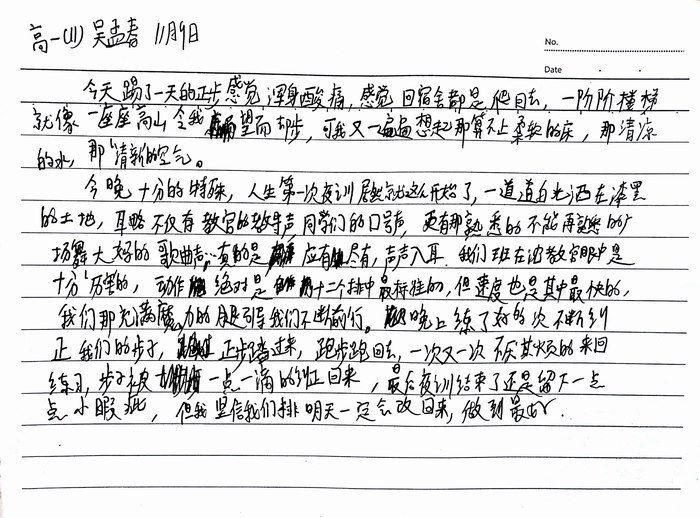 高一(11) 吴孟春 11月9日
No.
Date
今天踢了一天的正步感觉浑身酸痛,感觉回宿舍都是爬回去,一阶阶楼梯
就像一座座高山令我望而却步,可我又一遍遍想起那算不上柔软的床,那清凉
的水,那清新的空气。
今晚十分的特殊,人生第一次夜训居然就这么开始了,一道道白光洒在漆黑
的土地,耳畔不仅有教官的教导声,同学们的口号声,更有那熟悉的不能再熟悉的广
场舞大妈的歌曲声,真的是应有尽有,声声入耳.我们班在沈教官眼中是
十分厉害的,动作绝对是十二个排中最标准的,但速度也是其中最快的,
我们那充满魔力的月是引导我们不断前行。晚上练了好的次不断纠
正我们的步子,正步踏过来,跑步跑回去,一次又一次不厌其烦的来回
练习,步子被一点一滴的纠正回来,最后夜训结束了还是留下一点
点小瑕疵,但我坚信我们排明天一定会改回来,做到最好.